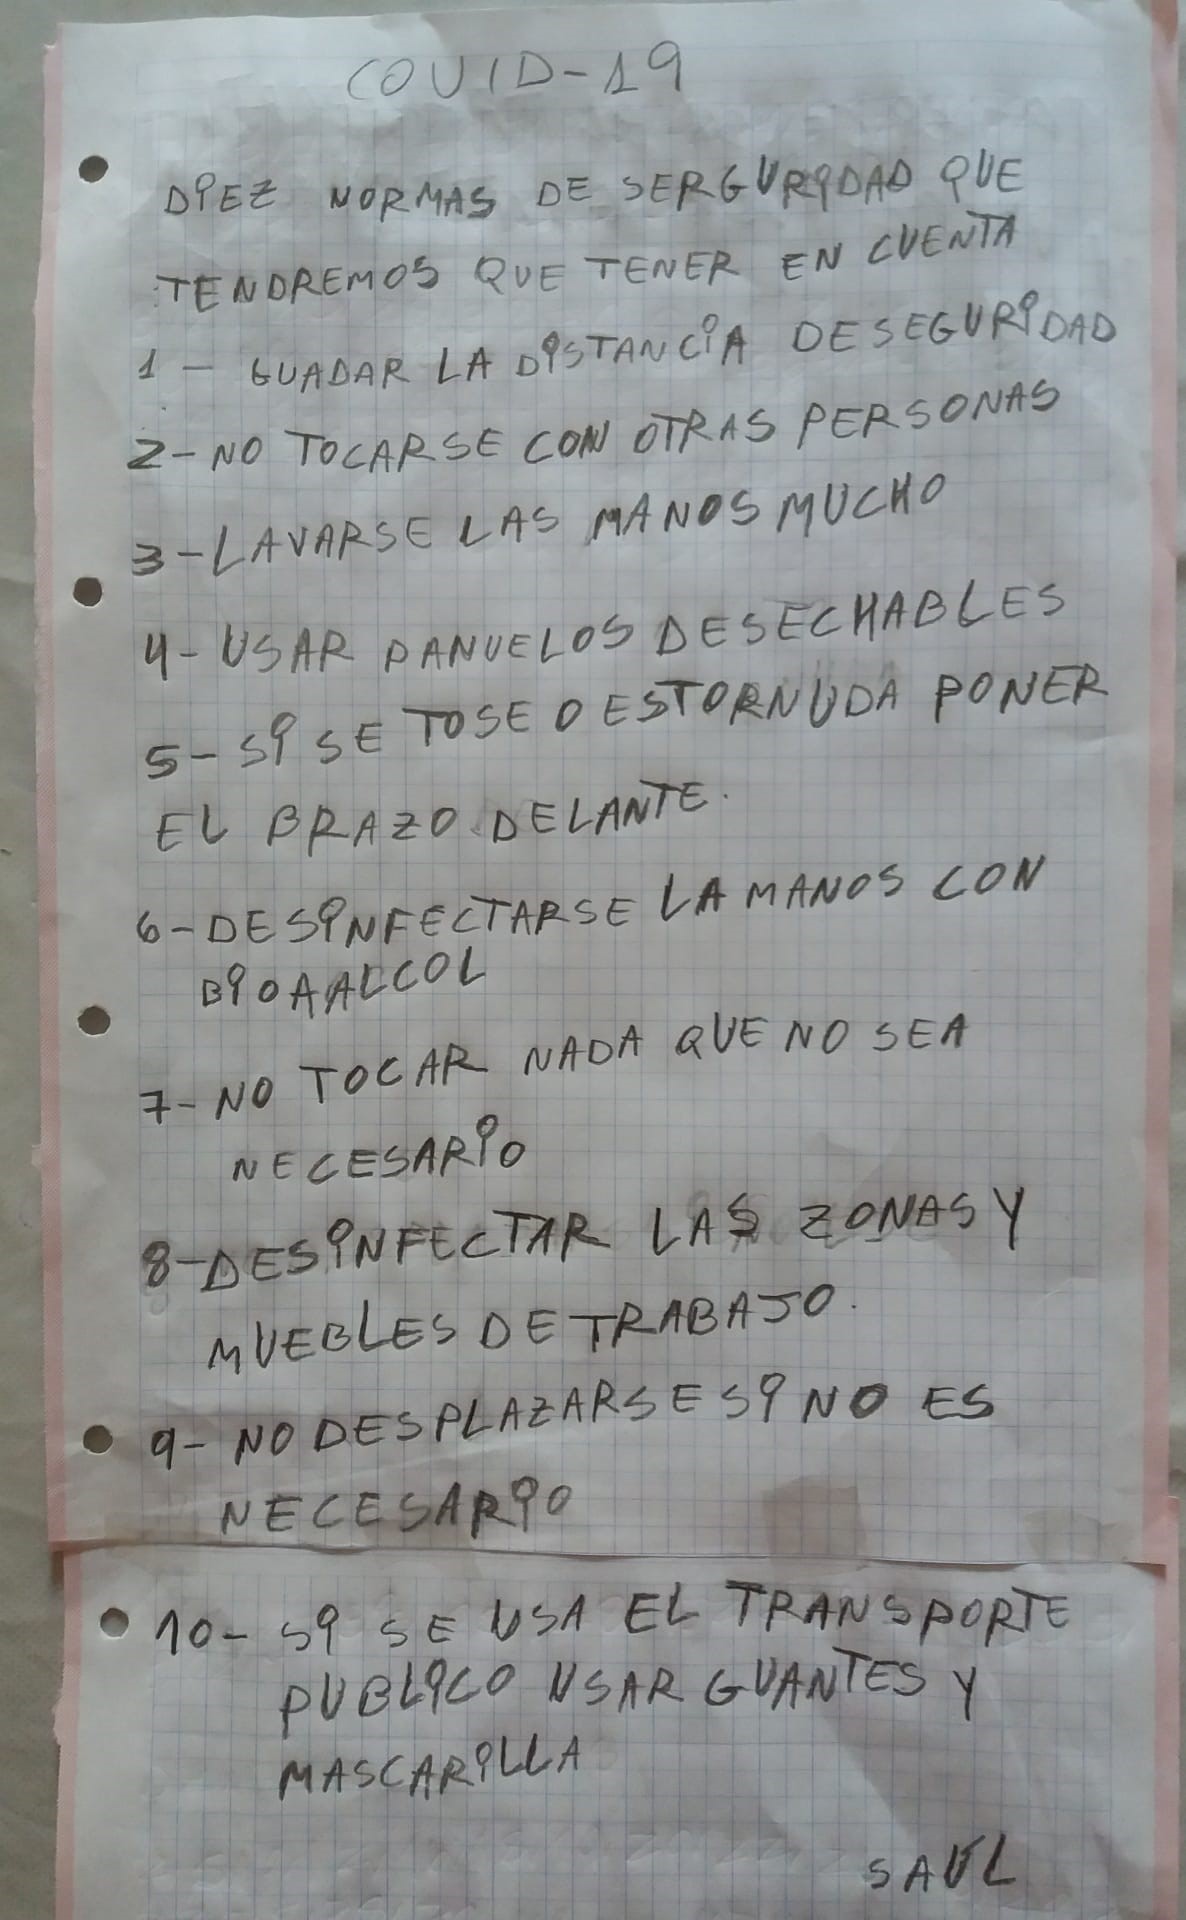 COVID-19
DIEZ NORMAS DE SERGURIDAD QUE
TENDREMOS QUE TENER EN CUENTA
1 - GUADAR LA DISTANCIA DE SEGURIDAD
2- NO TOCARSE CON OTRAS PERSONAS
3- LAVARSE LAS MANOS MUCHO
4- USAR PANUELOS DESECHABLES
5- SI SE TOSE O ESTORNUDA PONER
EL BRAZO DELANTE.
6- DESINFECTARSE LA MANOS CON
BIOAALCOL
7- NO TOCAR NADA QUE NO SEA
NECESARIO
8- DESINFECTAR LAS ZONAS Y
MUEBLES DE TRABAJO.
9- NO DESPLAZARSE SI NO ES
NECESARIO
10- SI SE USA EL TRANSPORTE
PUBLICO USAR GUANTES Y
MASCARILLA
SAUL